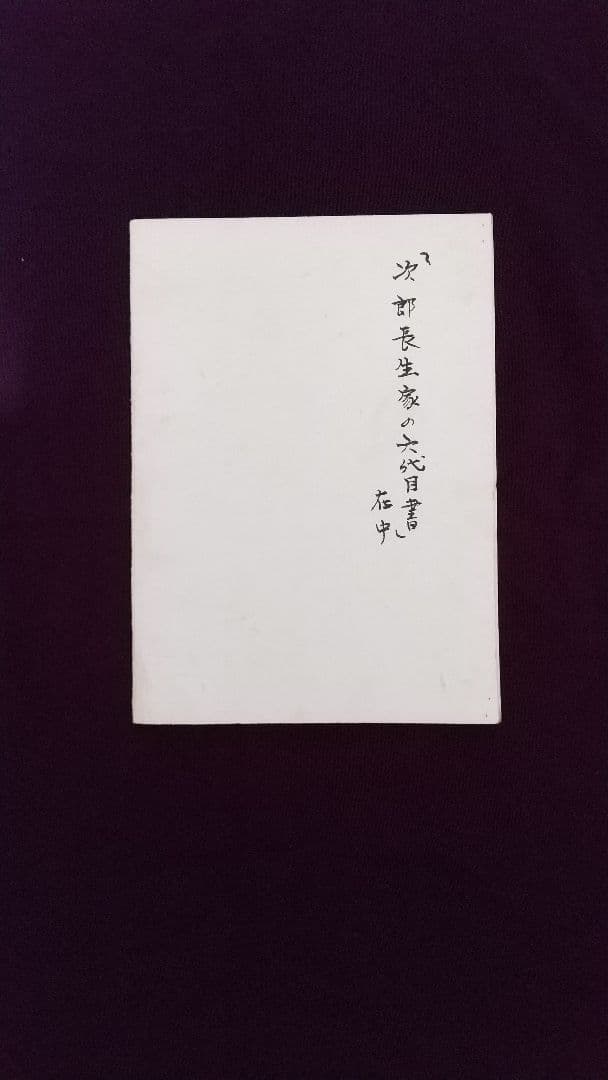 「次郎長生家の六代目書」
在中